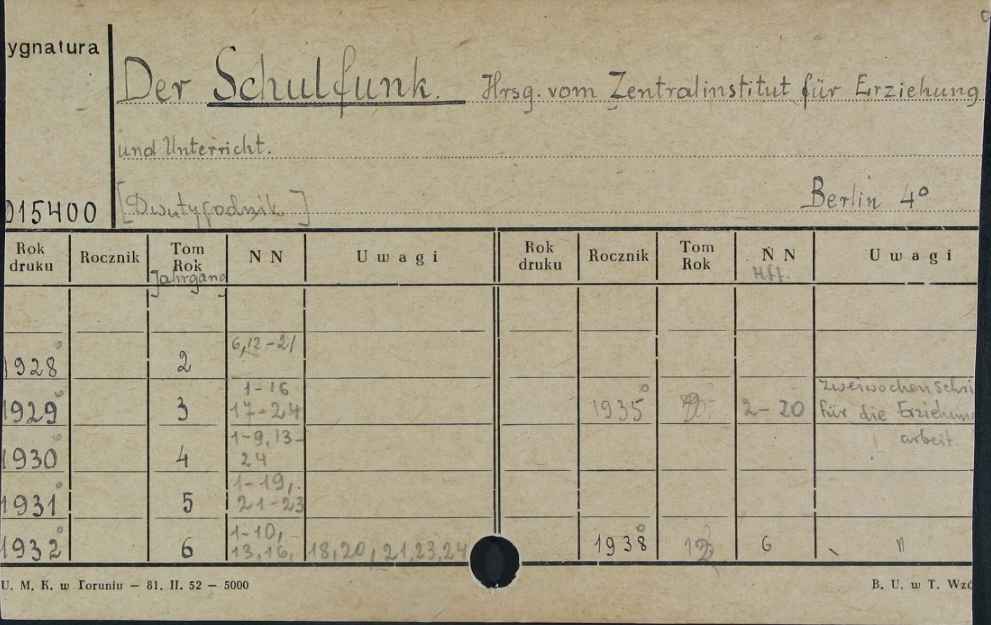 ygnatura
Der Schulfunk. Hrsg. vom Zentralinstitut für Erziehung
und Unterricht.
015400 [Dwutygodnik] Berlin 4°
Rok druku Rocznik Tom Rok Jahrgang N N Uwagi Rok druku Rocznik Tom Rok N N Hft. Uwagi
1928° 2 6,12-21
1929° 3 1-16 17-24 1935° 2-20 Zweiwochenschri für die Erziehun
1930° 4 1-9, 13-24 ! arbeit.
1931° 5 1-19, 21-23
1932° 6 1-10, 13,16, 18,20, 21,23,24 1938° 12 6 "
U. M. K. w Toruniu — 81. II. 52 — 5000 B. U. w T. Wzó